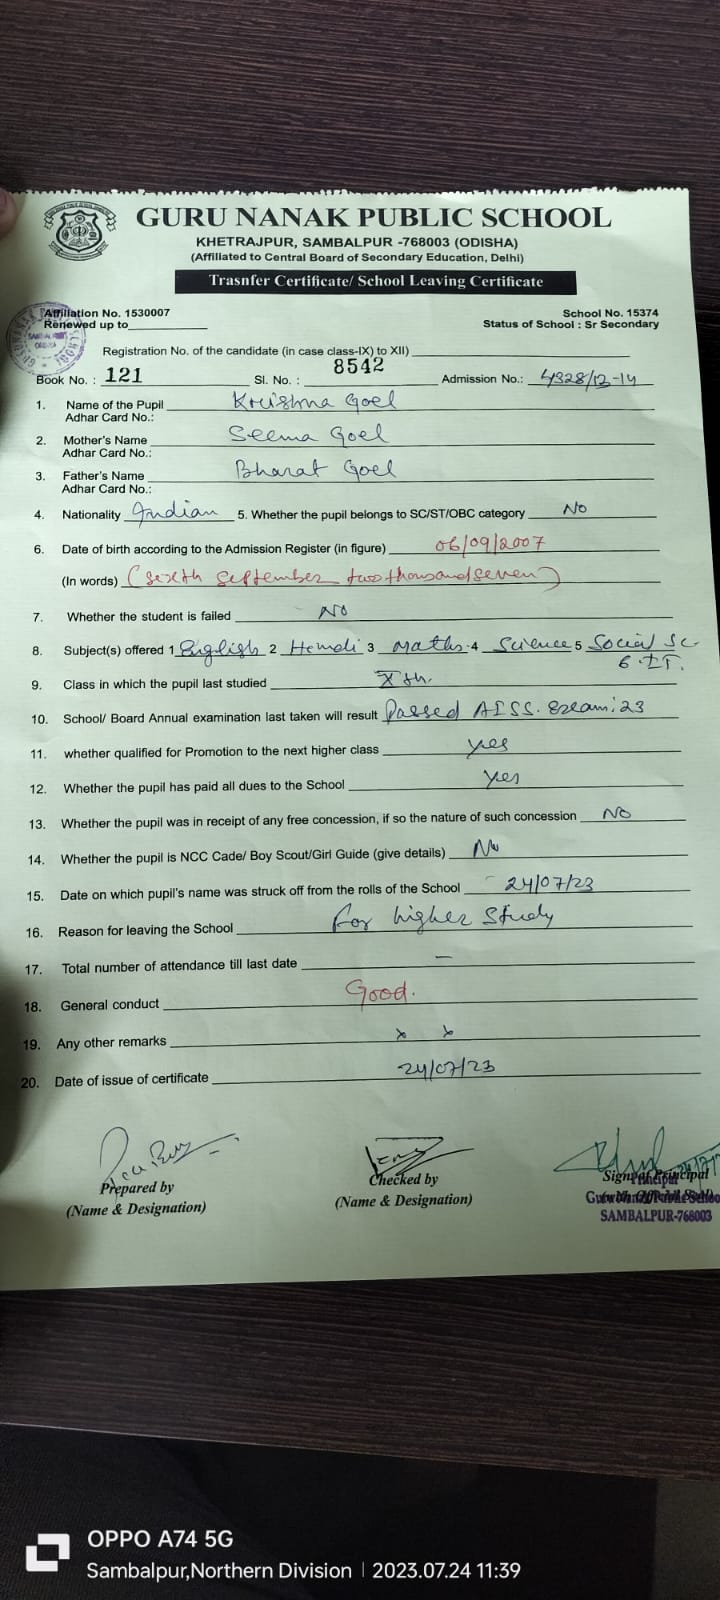 GURU NANAK PUBLIC SCHOOL
KHETRAJPUR, SAMBALPUR -768003 (ODISHA)
(Affiliated to Central Board of Secondary Education, Delhi)
Trasnfer Certificate/ School Leaving Certificate
Affiliation No. 1530007 School No. 15374
Renewed up to Status of School : Sr Secondary
Registration No. of the candidate (in case class-IX) to XII)
Book No. : 121 Sl. No. : 8542 Admission No.: 4328/13-14
1. Name of the Pupil Krishna Goel
Adhar Card No.:
2. Mother's Name Seema Goel
Adhar Card No.:
3. Father's Name Bharat Goel
Adhar Card No.:
4. Nationality Indian 5. Whether the pupil belongs to SC/ST/OBC category No
6. Date of birth according to the Admission Register (in figure) 06/09/2007
(In words) (sixth september two thousand seven)
7. Whether the student is failed NO
8. Subject(s) offered 1 English 2 Hindi 3 Maths 4 Science 5 Social Sc.
6 I.T.
9. Class in which the pupil last studied Xth.
10. School/ Board Annual examination last taken will result Passed AISS. Exam: 23
11. whether qualified for Promotion to the next higher class yes
12. Whether the pupil has paid all dues to the School yes
13. Whether the pupil was in receipt of any free concession, if so the nature of such concession NO
14. Whether the pupil is NCC Cade/ Boy Scout/Girl Guide (give details) No
15. Date on which pupil's name was struck off from the rolls of the School 24/07/23
16. Reason for leaving the School For higher Study
17. Total number of attendance till last date –
18. General conduct Good.
19. Any other remarks x x
20. Date of issue of certificate 24/07/23
Prepared by Checked by Sign of Principal
(Name & Designation) (Name & Designation)
Principal
Guru Nanak Public School
SAMBALPUR-768003
OPPO A74 5G
Sambalpur,Northern Division | 2023.07.24 11:39